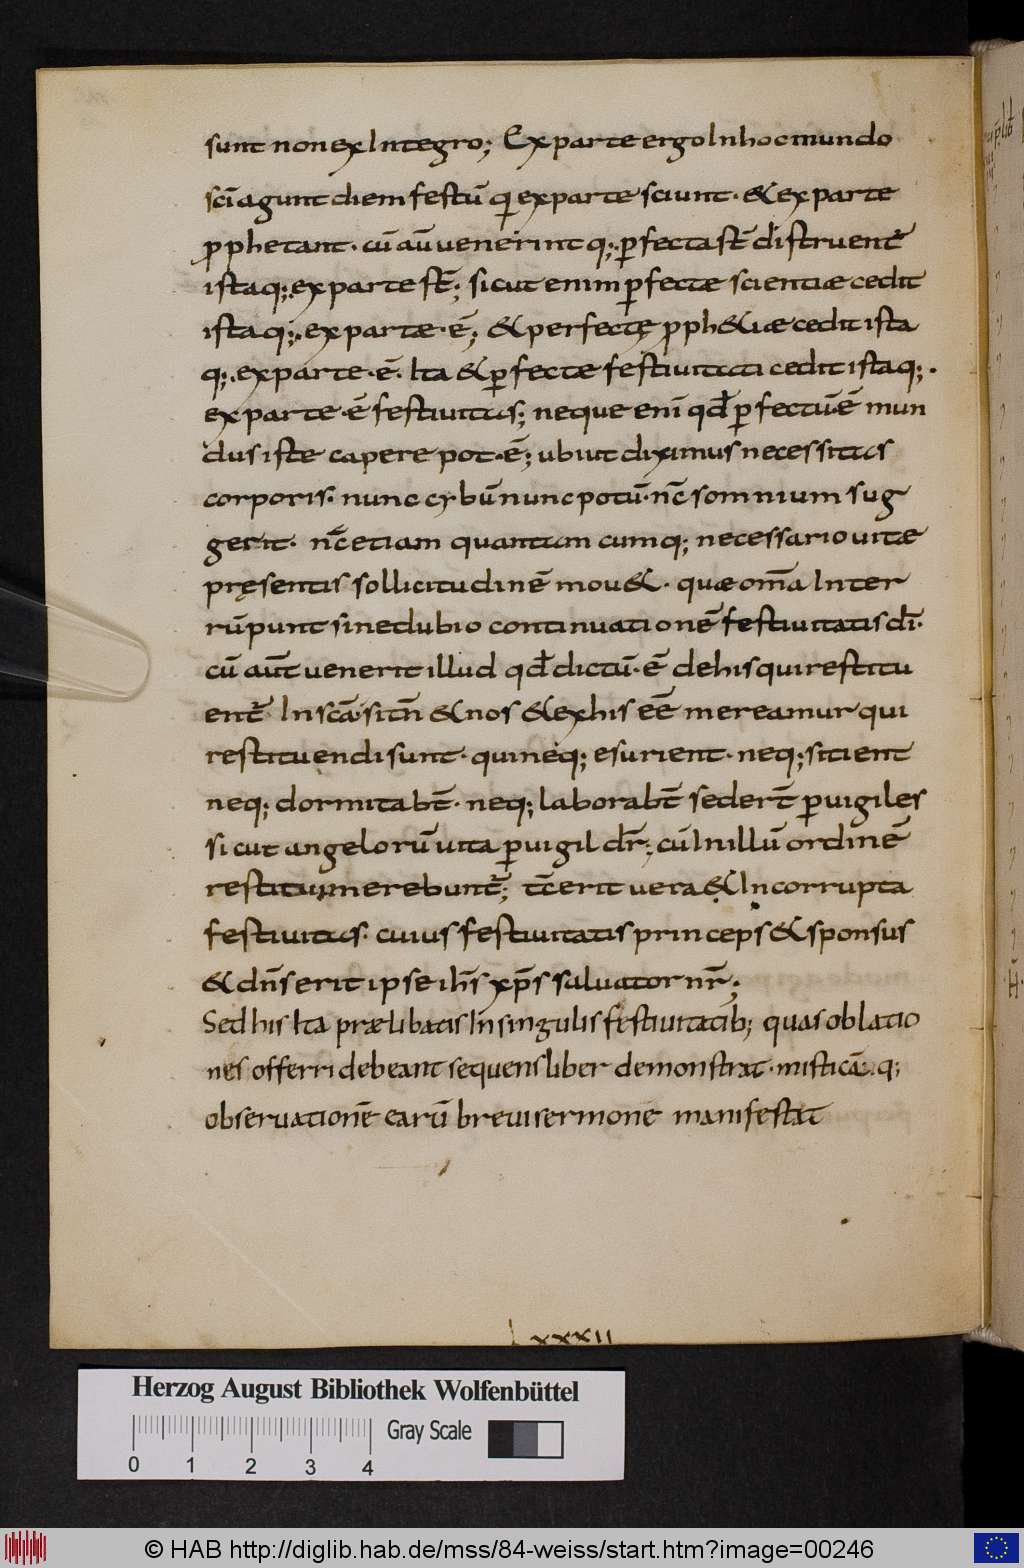 sunt non ex Integro; Ex parte ergo In hoc mundo
sc̄i agunt diem festū qi ex parte sciunt · & ex parte
pphetant · cū aū venerint q; pfecta st̄ distruent̄
ista q; ex parte st̄; sicut enim pfectæ scientiæ cedit
ista q; ex partæ · ē; & perfectę pph&iæ cedit ista
q; ex parte · ē · Ita & pfectæ festiuitati cedit ista q; ·
ex parte · ē festiuitas; neque enī qd̄ pfectū · ē mun
dus iste capere pot · ē; ubi ut diximus necessitas
corporis · nunc cybū nunc potū · nc̄ somnium sug
gerit · nc̄ etiam quantum cumq; necessario uitæ
pręsentis sollicitudinē mou& · quæ om̄a Inter
rūpunt sine dubio continuationē festiuitatis dī ·
cū aut̄ uenerit illud qd̄ dictū · ē de his qui restitu
ent̄ In scā sitn̄ & nos & ex his eē mereamur qui
restituendi sunt · qui neq; esurient · neq; sitient
neq; dormitabt̄ · neq; laborabt̄ sed ert̄ puigiles
sicut angelorū uita puigil dr̄; cū In illū ordinē
restitui merebunt̄; tc̄ erit uera & Incorrupta
festiuitas · cuius festiuitatis princeps & sponsus
& dn̄s erit ipse ih̄s xp̄s saluator nr̄;
Sed his Ita prælibatis In singulis festiuitatib; quas oblatio
nes offerri debeant sequens liber demonstrat · misticā q;
obseruationē earū breui sermone manifestat
LXXXII
Herzog August Bibliothek Wolfenbüttel
Gray Scale
0 1 2 3 4
© HAB http://diglib.hab.de/mss/84-weiss/start.htm?image=00246